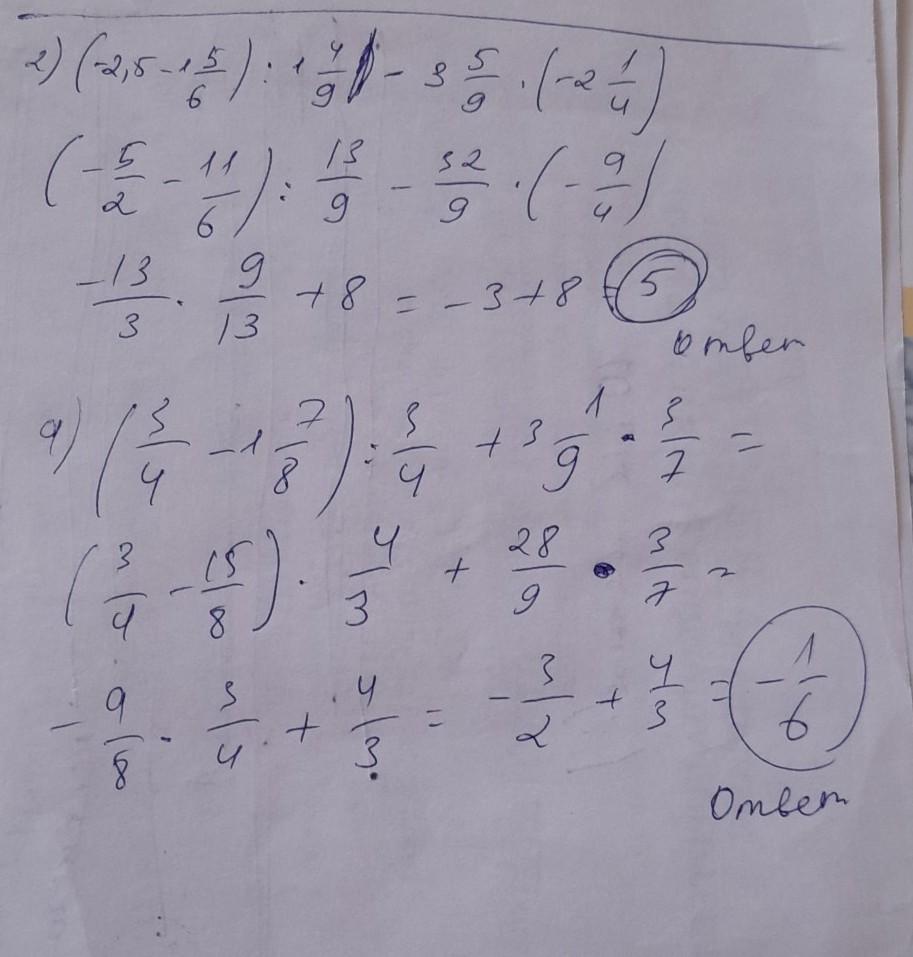 2) (-2,5 - 1 5/6) : 1 4/9 - 3 5/9 · (-2 1/4)
(-5/2 - 11/6) : 13/9 - 32/9 · (-9/4)
-13/3 · 9/13 + 8 = -3 + 8 = 5
ответ
9) (3/4 - 1 7/8) : 3/4 + 3 1/9 · 3/7 =
(3/4 - 15/8) · 4/3 + 28/9 · 3/7 =
-9/8 · 3/4 + 4/3 = -3/2 + 4/3 = -1/6
Ответ